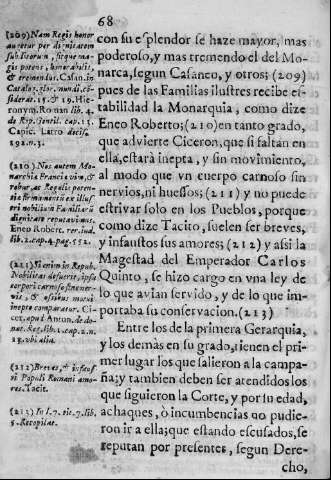 68
con su esplendor se haze mayor, mas
poderoso, y mas tremendo el del Mo-
narca, segun Casaneo, y otros; (209)
pues de las Familias ilustres recibe es-
tabilidad la Monarquia, como dize
Eneo Roberto; (210) en tanto grado,
que advierte Ciceron, que si faltan en
ella, estarà inepta, y sin movimiento,
al modo que vn cuerpo carnoso sin
nervios, ni huessos; (211) y no puede
estrivar solo en los Pueblos, porque
como dize Tacito, suelen ser breves,
y infaustos sus amores; (212) y assi la
Magestad del Emperador Carlos
Quinto, se hizo cargo en vna ley de
lo que avian servido, y de lo que im-
portaba su conservacion. (213)
Entre los de la primera Gerarquia,
y los demàs en su grado, tienen el pri-
mer lugar los que salieron a la campa-
ña; y tambien deben ser atendidos los
que siguieron la Corte, y por su edad,
achaques, ò incumbencias no pudie-
ron ir a ella; que estando escusados, se
reputan por presentes, segun Dere-
cho,
(209) Nam Regis honor
augetur per dignitatem
subditorum, fitque ma-
gis potens, honorabilis,
& tremendus. Casan. in
Catalog. glor. mundi, có-
siderat. 15. & 19. Hie-
ronym. Roman lib. 4.
de Rep. Gentil. cap. 15.
Capic. Latro decis.
192. n. 3.
(210) Nos autem Mo-
narchia Francis vim, &
robur, ac Regalis poten-
tiæ firmamentum ex illus-
tri nobilium Familiarũ
dignitate reputavimus.
Eneo Robert. rer. iud.
lib. 2. cap. 4. pag. 552.
(211) Si enim in Repub.
Nobilitas defuerit, ipsa
corpori carnoso sine ner-
vis, & ossibus motui
inepto comparatur. Ci-
cer. apud Anton. de do-
nat. Reg. lib. 1. cap. 2. n.
13. vbi alia.
(212) Breves, & infausti
Populi Romani amo-
res. Tacit.
(213) In l. 7. tit. 7. lib.
5. Recopilat.